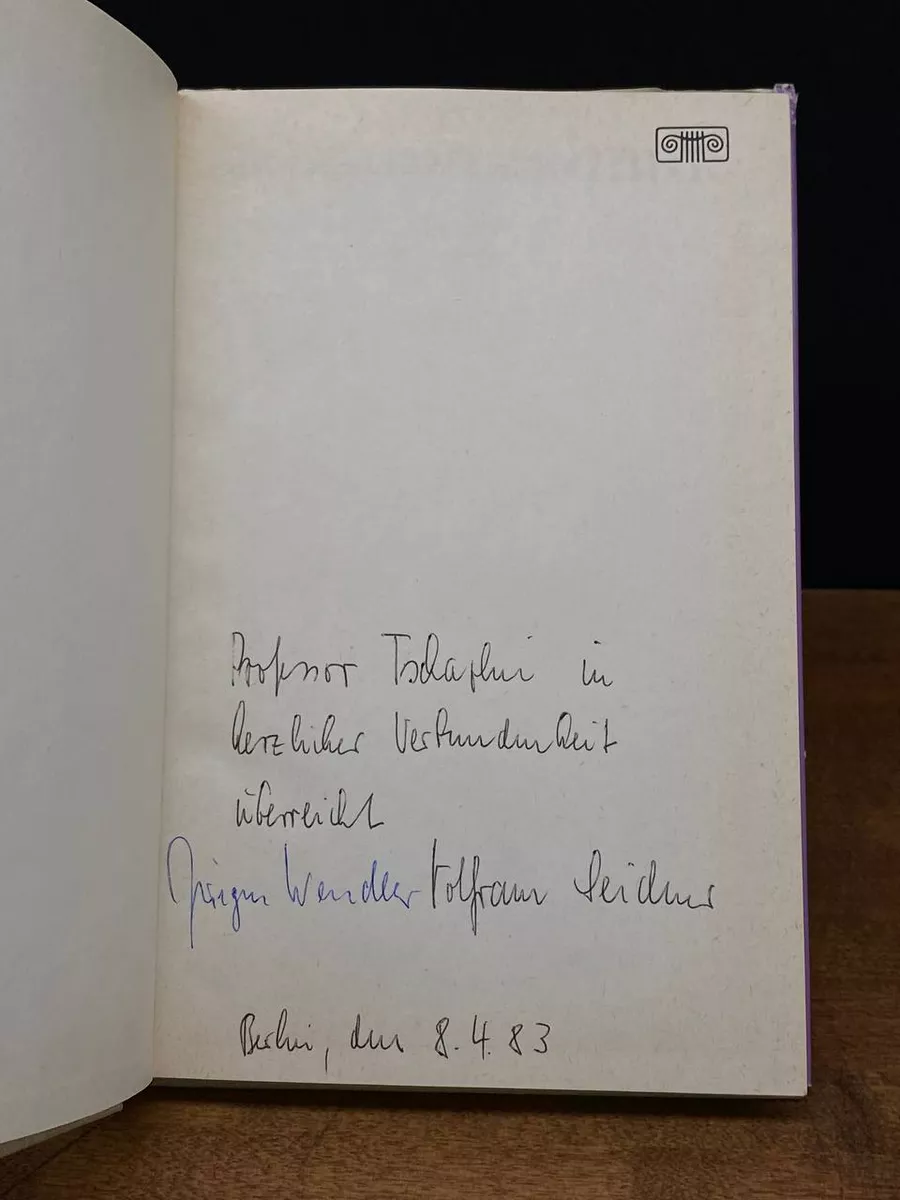 Professor Tschaplin in
herzlicher Verbundenheit
überreicht
Jürgen Wendler Wolfram Seidner
Berlin, den 8.4.83